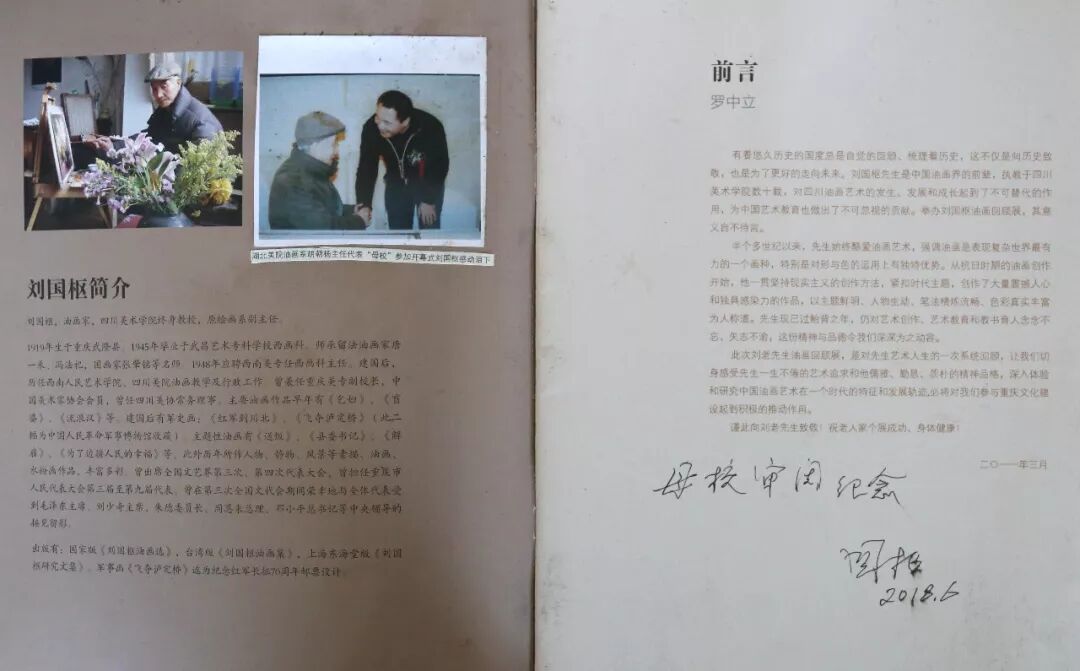 湖北美院油画系胡朝杨主任代表“母校”参加开幕式刘国枢感动泪下
刘国枢简介
刘国枢，油画家，四川美术学院终身教授，原绘画系副主任。
1919年生于重庆武隆县，1945年毕业于武昌艺术专科学校西画科。师承留法油画家唐
一禾、冯法祀，国画家张肇铭等名师。1948年应聘西南美专任西画科主任。建国后，
历任西南人民艺术学院、四川美院油画教学及行政工作。曾兼任重庆美专副校长，中
国美术家协会会员，曾任四川美协常务理事。主要油画作品早年有《乞妇》、《盲
婆》、《流浪汉》等。建国后有军史画：《红军到川北》、《飞夺泸定桥》（此二
幅为中国人民革命军事博物馆收藏）。主题性油画有《送饭》、《县委书记》、《解
雇》、《为了边疆人民的幸福》等。此外历年所作人物、静物、风景等素描、油画、
水粉画作品，丰富多彩。曾出席全国文艺界第三次、第四次代表大会，曾担任重庆市
人民代表大会第三届至第九届代表。曾在第三次全国文代会期间荣幸地与全体代表受
到毛泽东主席、刘少奇主席、朱德委员长、周恩来总理、邓小平总书记等中央领导的
接见留影。
出版有：国家版《刘国枢油画选》，台湾版《刘国枢油画集》，上海东海堂版《刘国
枢研究文集》。军事画《飞夺泸定桥》选为纪念红军长征70周年邮票设计。
前言
罗中立
有着悠久历史的国度总是自觉的回顾、梳理着历史，这不仅是向历史致
敬，也是为了更好的走向未来。刘国枢先生是中国油画界的前辈，执教于四川
美术学院数十载，对四川油画艺术的发生、发展和成长起到了不可替代的作
用，为中国艺术教育也做出了不可忽视的贡献。举办刘国枢油画回顾展，其意
义自不待言。
半个多世纪以来，先生始终酷爱油画艺术，强调油画是表现复杂世界最有
力的一个画种，特别是对形与色的运用上有独特优势。从抗日时期的油画创作
开始，他一贯坚持现实主义的创作方法，紧扣时代主题，创作了大量震撼人心
和独具感染力的作品，以主题鲜明、人物生动，笔法精炼流畅、色彩真实丰富
为人称道。先生现已过鲐背之年，仍对艺术创作、艺术教育和教书育人念念不
忘，矢志不渝，这份精神与品德令我们深深为之动容。
此次刘老先生油画回顾展，是对先生艺术人生的一次系统回顾，让我们切
身感受先生一生不倦的艺术追求和他儒雅、勤恳、质朴的精神品格，深入体验
和研究中国油画艺术在一个时代的特征和发展轨迹，必将对我们参与重庆文化建
设起到积极的推动作用。
谨此向刘老先生致敬！祝老人家个展成功、身体健康！
二〇一一年三月
母校审阅纪念
国枢
2018.6